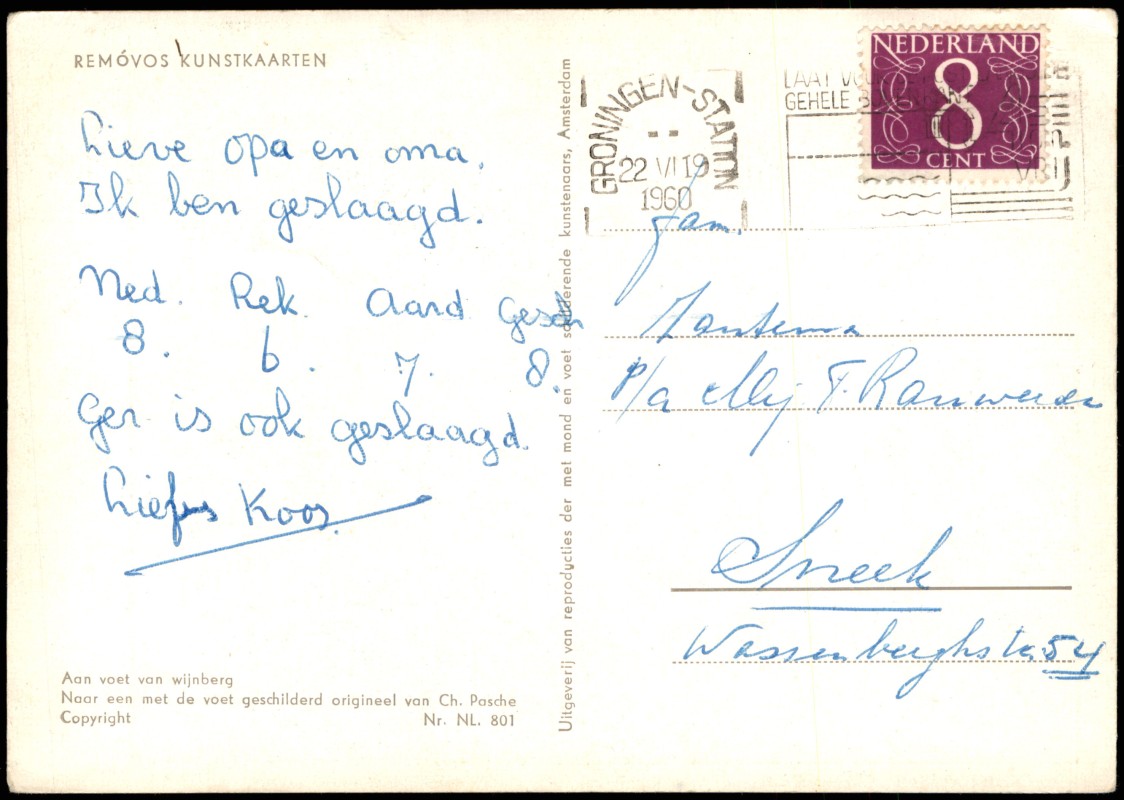 REMÓVOS KUNSTKAARTEN
Lieve opa en oma.
Ik ben geslaagd.
Ned. Rek. Aard Gesch
8. 6. 7. 8.
Ger is ook geslaagd.
Liefus Koos.
Aan voet van wijnberg
Naar een met de voet geschilderd origineel van Ch. Pasche
Copyright Nr. NL. 801
Uitgeverij van reproducties der met mond en voet schilderende kunstenaars, Amsterdam
GRONINGEN-STATION
22 VI 19
1960
LAAT
GEHELE
NEDERLAND
8
CENT
fam.
Zantema
p/a Mej F.
Sneek
Wassenberghstr. 54